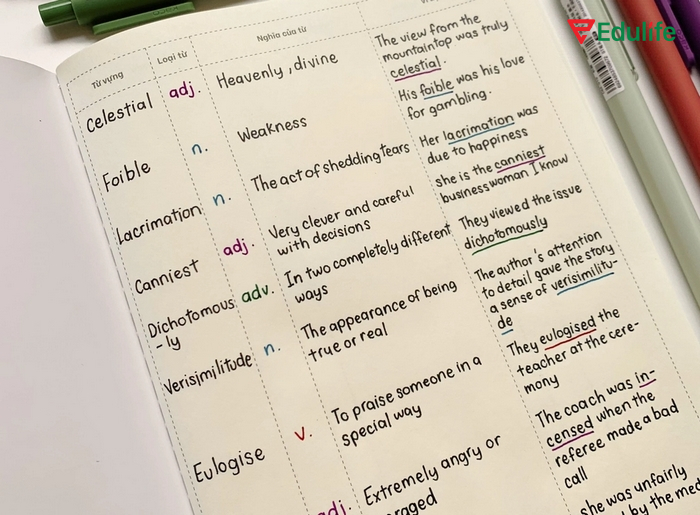 Edulife
Từ vựng
Loại từ
Nghĩa của từ
Celestial
adj.
Heavenly, divine
The view from the
mountaintop was truly
celestial.
Foible
n.
Weakness
His foible was his love
for gambling.
Lacrimation
n.
The act of shedding tears
Her lacrimation was
due to happiness
Canniest
adj.
Very clever and careful
with decisions
she is the canniest
businesswoman I know
Dichotomous
-ly
adv.
In two completely different
ways
They viewed the issue
dichotomously
Verisimilitude
n.
The appearance of being
true or real
The author's attention
to detail gave the story
a sense of verisimilitu-
de
Eulogise
v.
To praise someone in a
special way
They eulogised the
teacher at the cere-
mony
adj.
Extremely angry or
The coach was in-
censed when the
referee made a bad
call
she was unfairly
by the